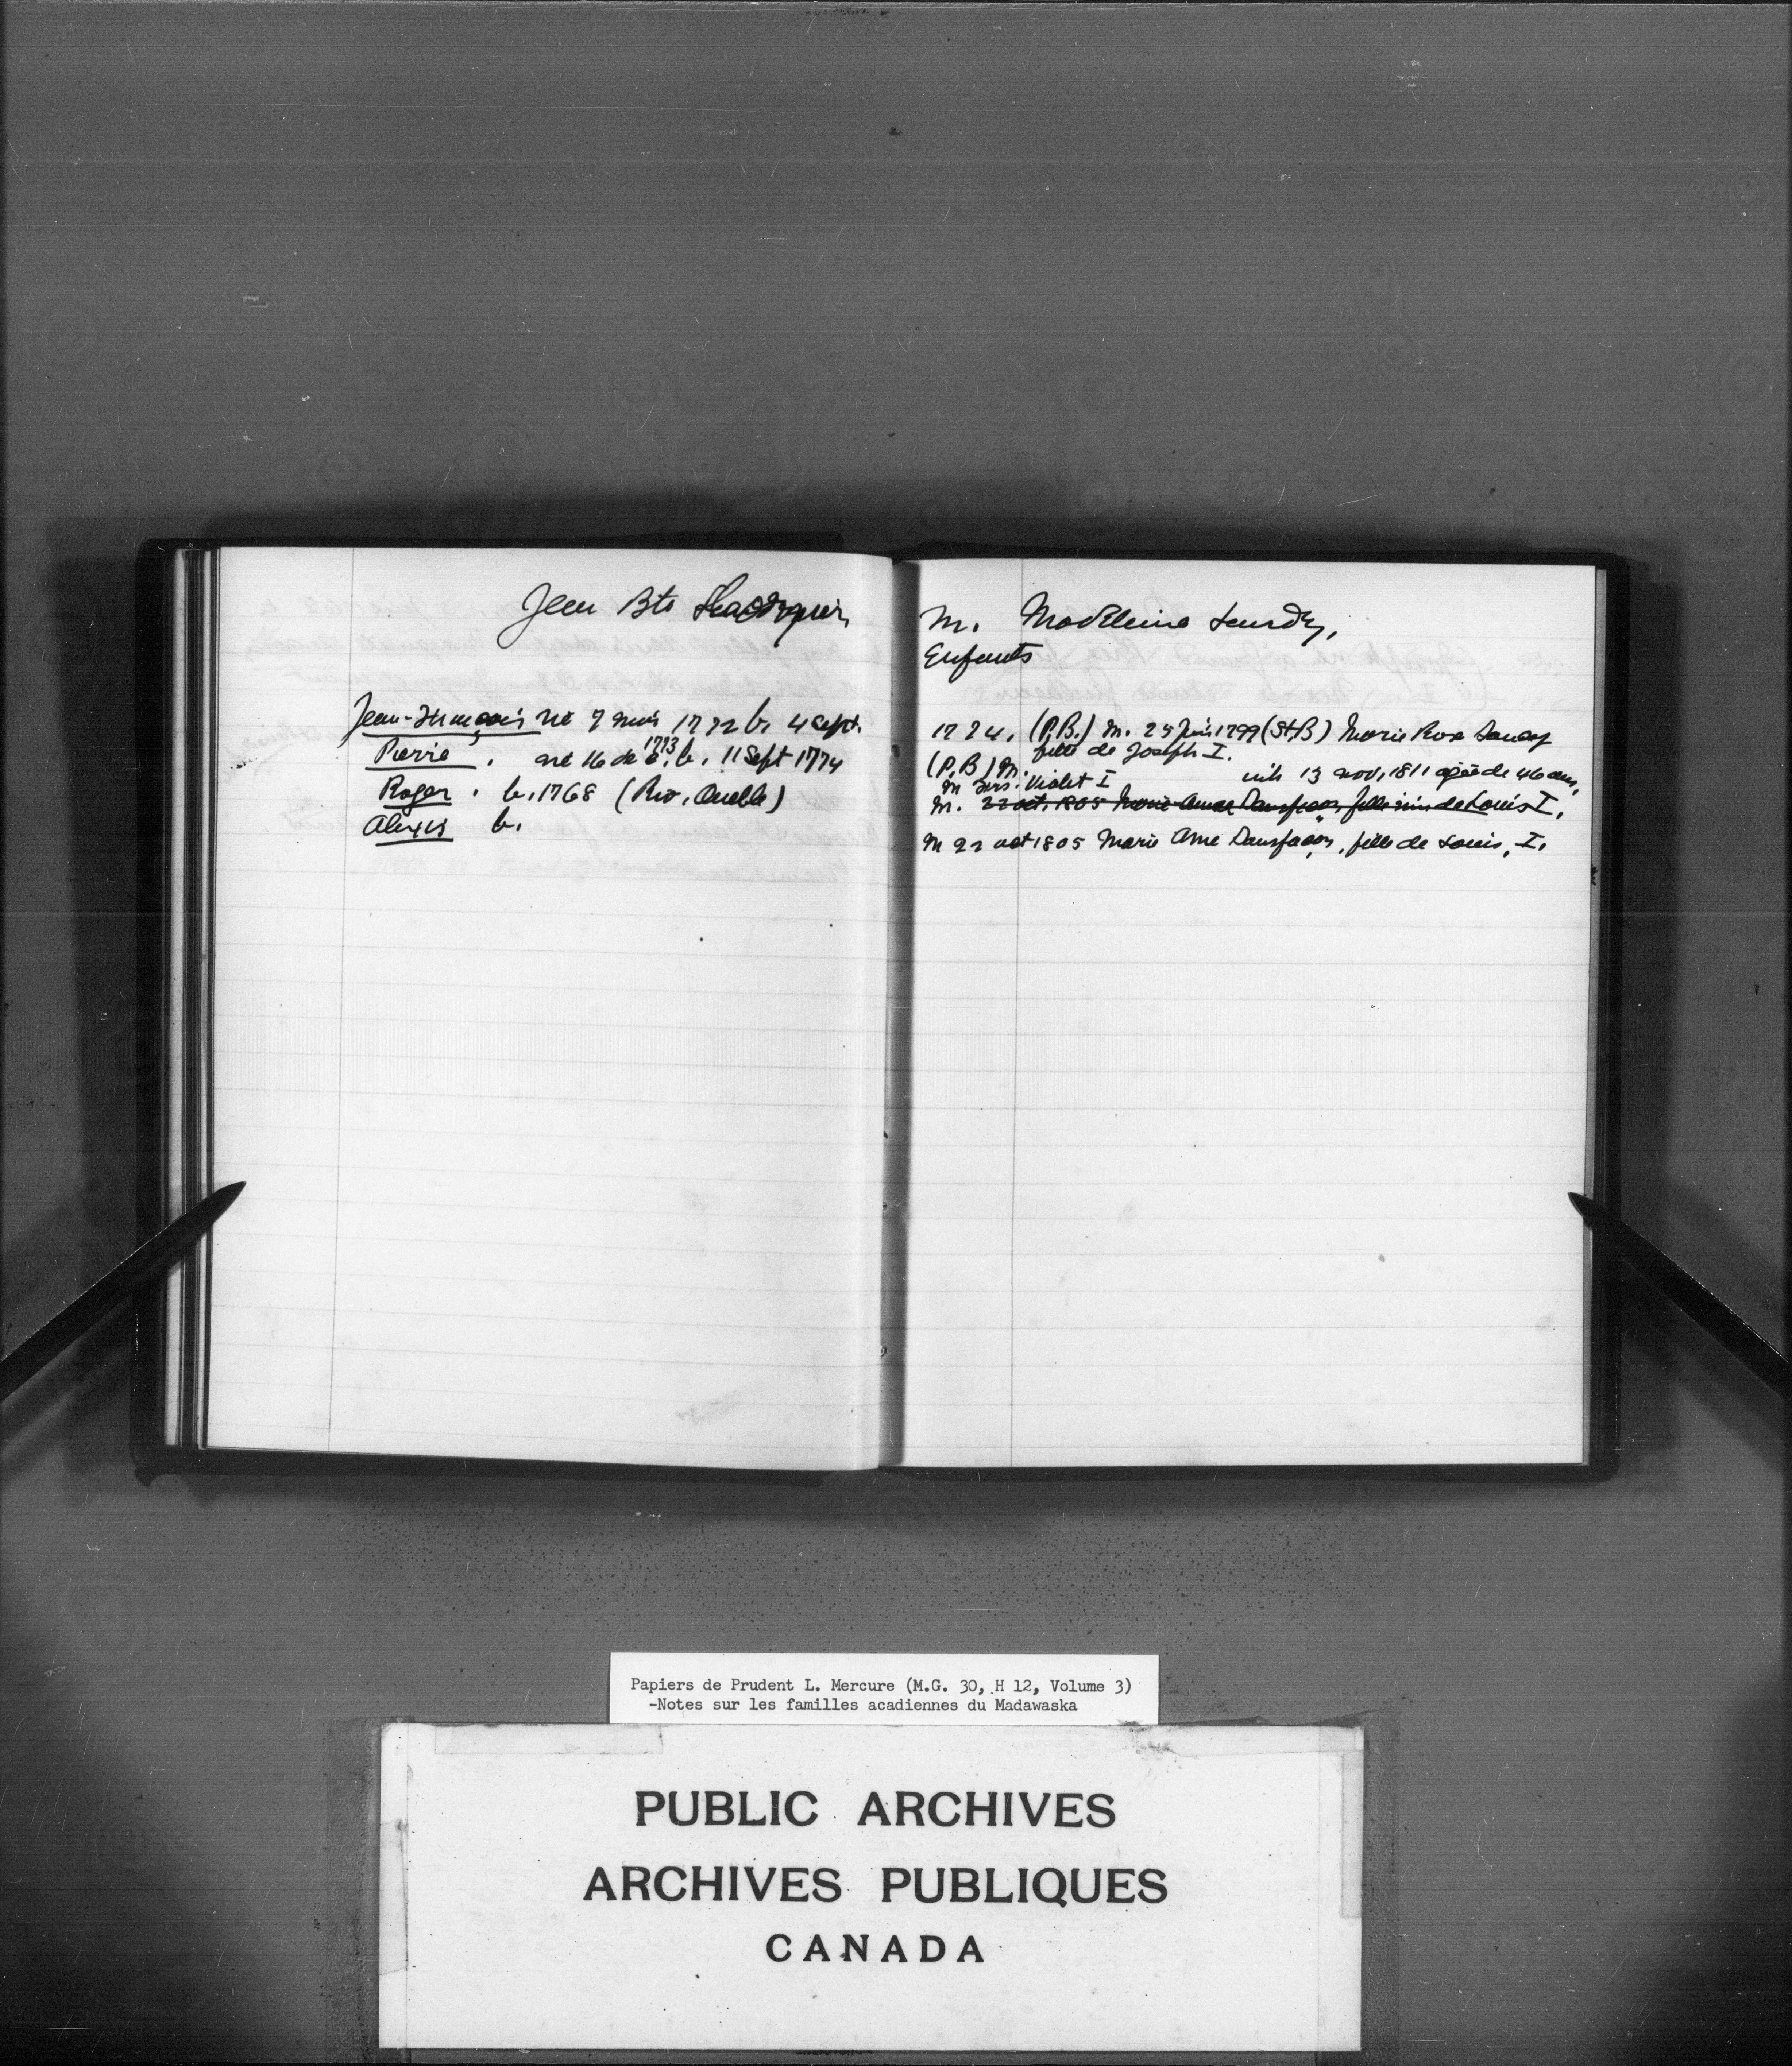 Jean Bte
M. Madeleine
Enfants
Jean-François né 7 mois 1772 b. 4 Sept.
1724. (P.B.) M. 25 Juin 1799 (St.B) Marie Rose
fille de Joseph I.
Pierre, né 16 de 1773, b. 11 Sept 1774
(P.B) M.
inh 13 nov, 1811 agée de 46 ans,
Roger. b. 1768 (Riv. Ouelle)
M Violet I
Alexis b.
M. 22 oct. 1805 Marie Anne Dansfacon, fille de Louis I.
M 22 oct 1805 Marie Anne Dansfacon, fille de Louis, I.
Papiers de Prudent L. Mercure (M.G. 30, H 12, Volume 3)
-Notes sur les familles acadiennes du Madawaska
PUBLIC ARCHIVES
ARCHIVES PUBLIQUES
CANADA